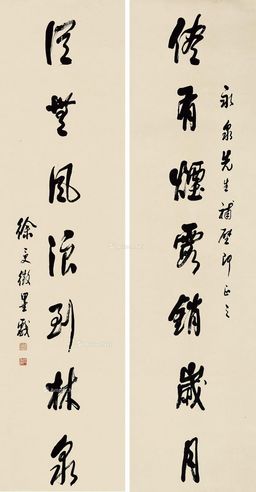 永泉先生補壁即正之
儘有煙霞銷歲月
從無風浪到林泉
徐 墨戲